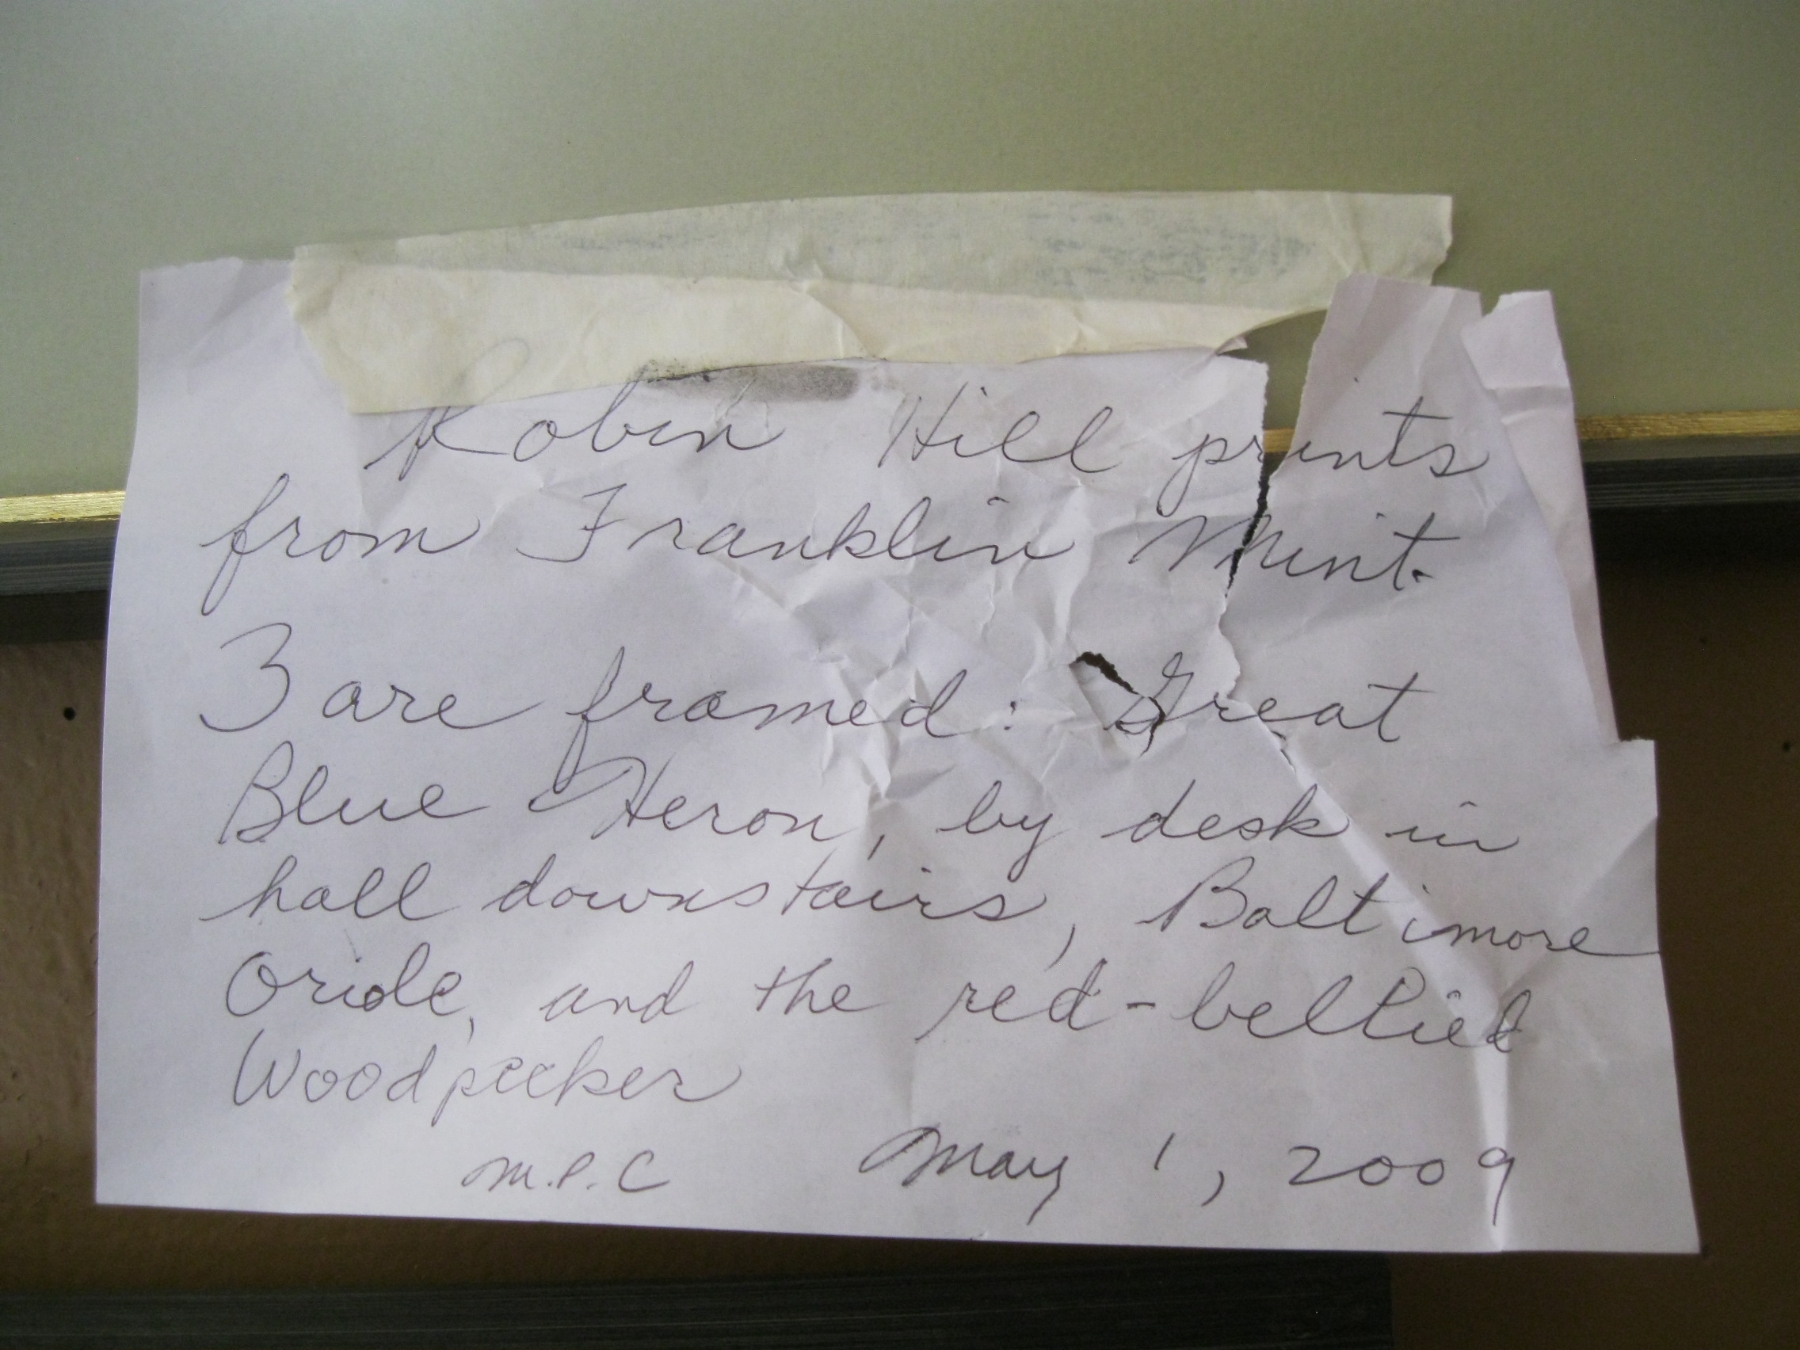 Robin Hill prints
from Franklin Mint.
3 are framed: Great
Blue Heron, by desk in
hall downstairs, Baltimore
Oriole, and the red-bellied
Woodpecker
M.P.C May 1, 2009